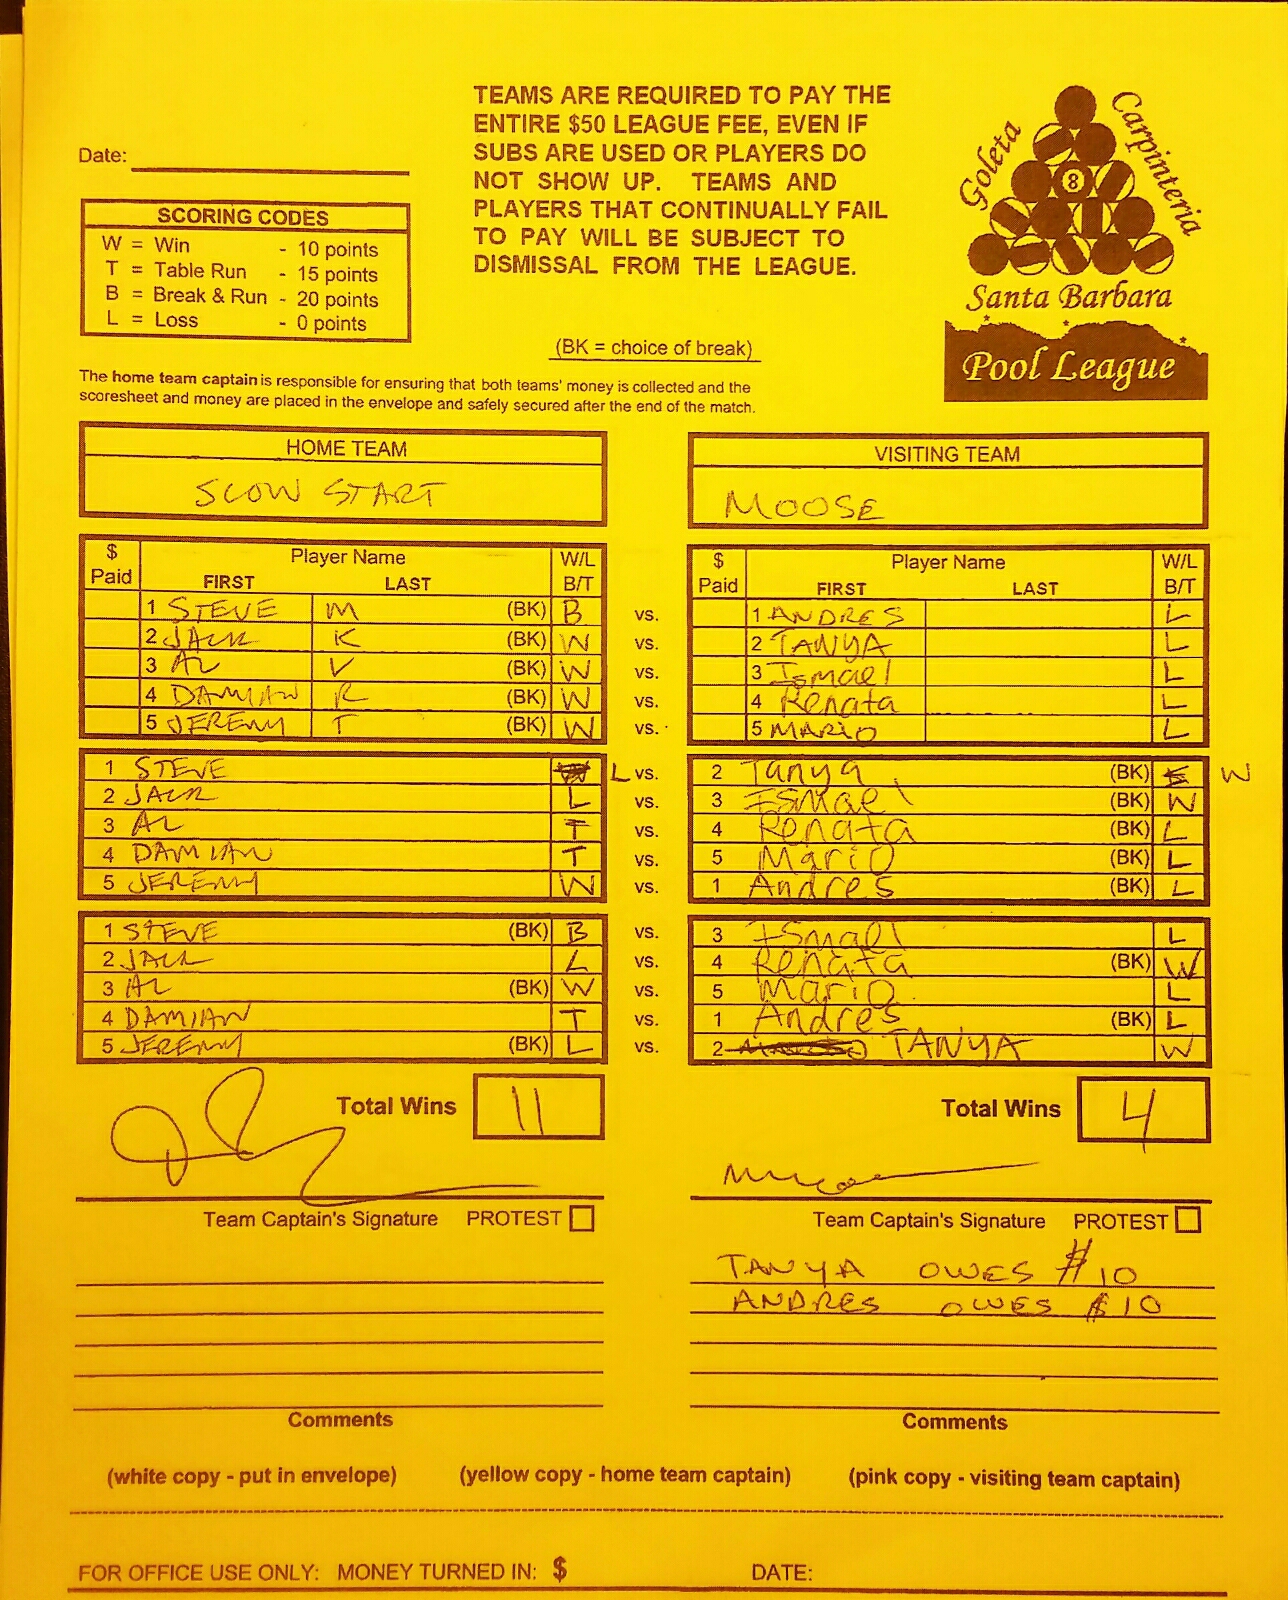 TEAMS ARE REQUIRED TO PAY THE
ENTIRE $50 LEAGUE FEE, EVEN IF
SUBS ARE USED OR PLAYERS DO
NOT SHOW UP. TEAMS AND
PLAYERS THAT CONTINUALLY FAIL
TO PAY WILL BE SUBJECT TO
DISMISSAL FROM THE LEAGUE.
Goleta
Carpinteria
8
Santa Barbara
Pool League
Date:
SCORING CODES
W = Win - 10 points
T = Table Run - 15 points
B = Break & Run - 20 points
L = Loss - 0 points
(BK = choice of break)
The home team captain is responsible for ensuring that both teams' money is collected and the
scoresheet and money are placed in the envelope and safely secured after the end of the match.
HOME TEAM VISITING TEAM
SLOW START MOOSE
$ Player Name W/L $ Player Name W/L
Paid FIRST LAST B/T Paid FIRST LAST B/T
1 STEVE M (BK) B vs. 1 ANDRES L
2 JACK K (BK) W vs. 2 TANYA L
3 AL V (BK) W vs. 3 Ismael L
4 DAMIAN R (BK) W vs. 4 Renata L
5 JEREMY T (BK) W vs. 5 MARIO L
1 STEVE L vs. 2 Tanya (BK) W
2 JACK L vs. 3 ISmael (BK) W
3 AL T vs. 4 Renata (BK) L
4 DAMIAN T vs. 5 Mario (BK) L
5 JEREMY W vs. 1 Andres (BK) L
1 STEVE (BK) B vs. 3 ISmael L
2 JACK L vs. 4 Renata (BK) W
3 AL (BK) W vs. 5 Mario L
4 DAMIAN T vs. 1 Andres (BK) L
5 JEREMY (BK) L vs. 2 TANYA W
Total Wins 11 Total Wins 4
Team Captain's Signature PROTEST Team Captain's Signature PROTEST
TANYA OWES $10
ANDRES OWES $10
Comments Comments
(white copy - put in envelope) (yellow copy - home team captain) (pink copy - visiting team captain)
FOR OFFICE USE ONLY: MONEY TURNED IN: $ DATE: